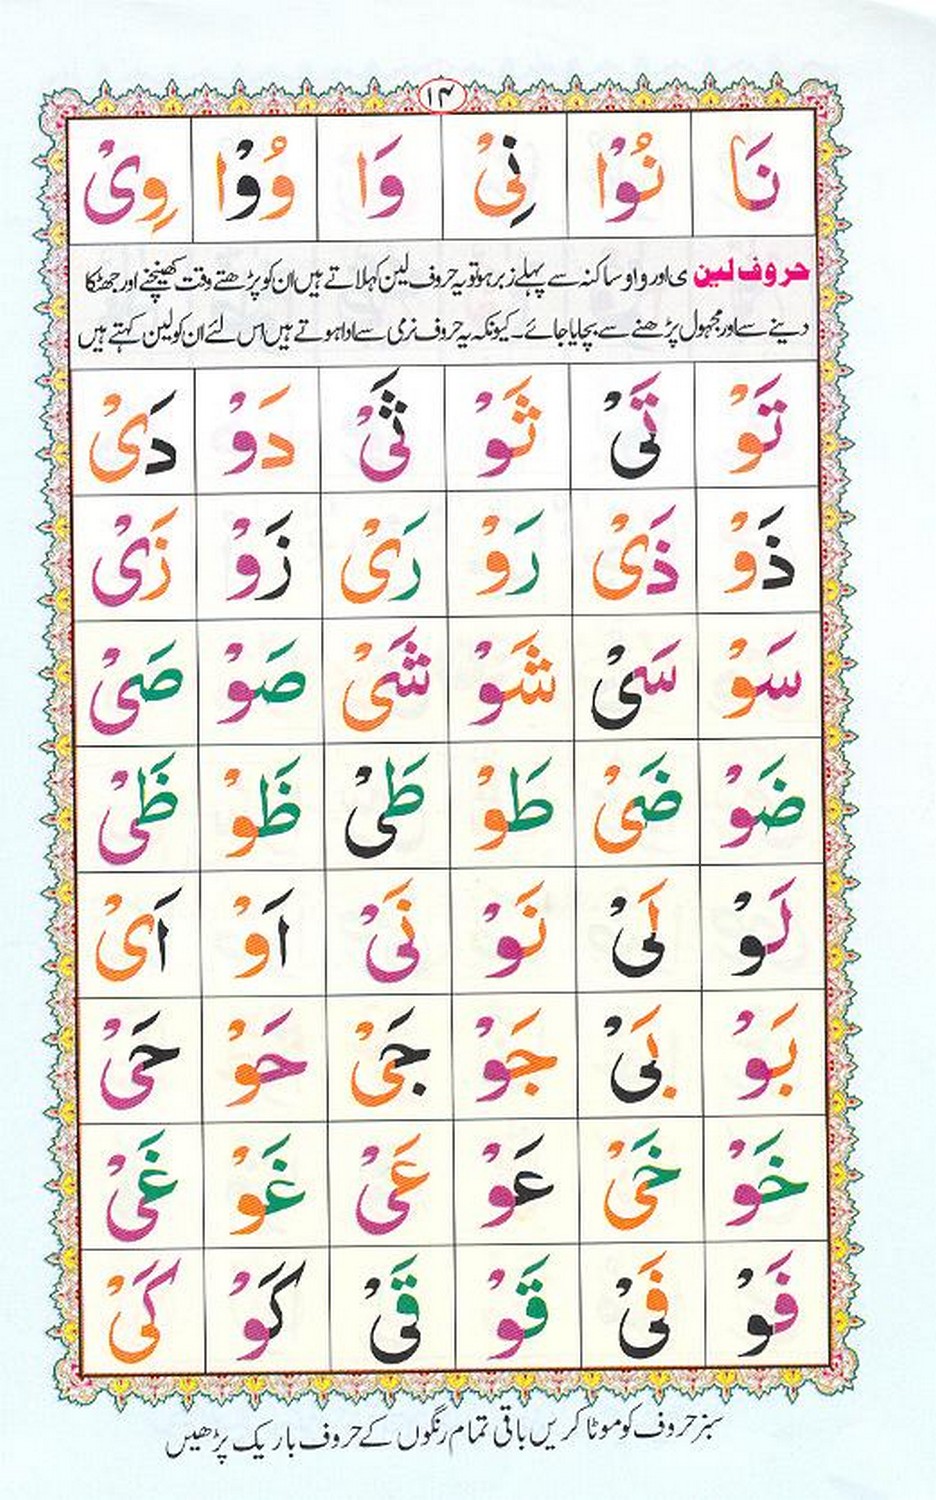 ۱۴
نَا نُوْا نِیْ وَا وُوْا وِیْ
حروف لین ی اور واو ساکنہ سے پہلے زبر ہو تو یہ حروف لین کہلاتے ہیں ان کو پڑھتے وقت کھینچنے اور جھٹکا
دینے سے اور مجہول پڑھنے سے بچایا جائے۔ کیونکہ یہ حروف نرمی سے ادا ہوتے ہیں اس لئے ان کو لین کہتے ہیں
تَوْ تَیْ ثَوْ ثَیْ دَوْ دَیْ
ذَوْ ذَیْ رَوْ رَیْ زَوْ زَیْ
سَوْ سَیْ شَوْ شَیْ صَوْ صَیْ
ضَوْ ضَیْ طَوْ طَیْ ظَوْ ظَیْ
لَوْ لَیْ نَوْ نَیْ اَوْ اَیْ
بَوْ بَیْ جَوْ جَیْ حَوْ حَیْ
خَوْ خَیْ عَوْ عَیْ غَوْ غَیْ
فَوْ فَیْ قَوْ قَیْ كَوْ كَیْ
سبز حروف کو موٹا کریں باقی تمام رنگوں کے حروف باریک پڑھیں